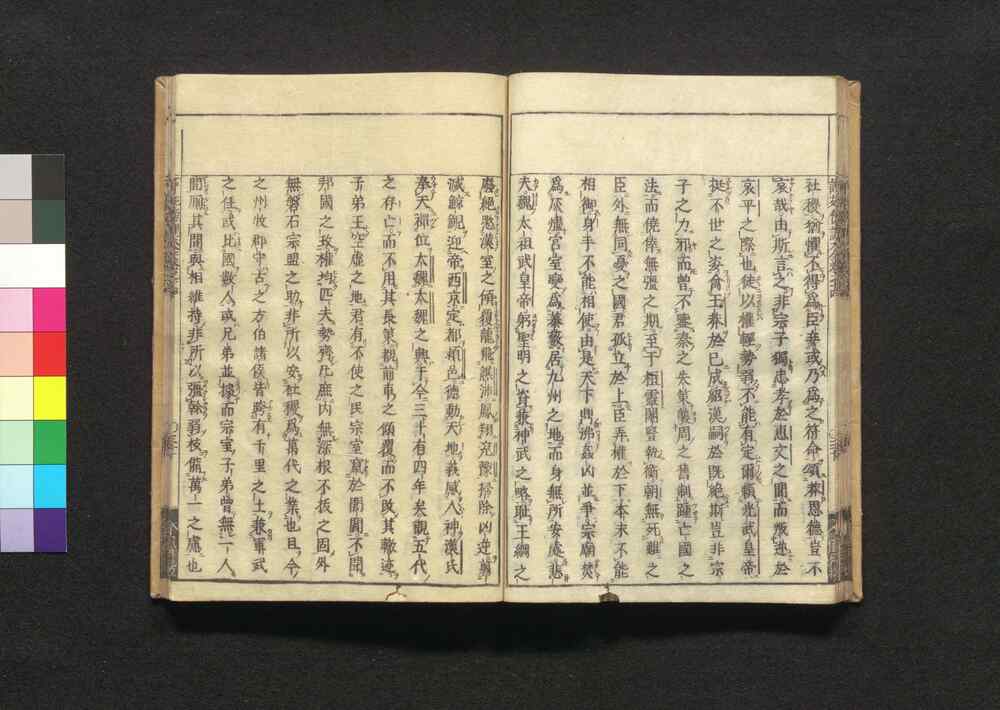 社稷猶懼不得爲臣妾或乃爲之符命頌莽恩德豈不
哀哉由斯言之非宗子獨忠孝於惠文之間而叛逆於
哀平之際也徒以權輕勢弱不能有定爾賴光武皇帝
挺不世之姿禽王莽於已成紹漢嗣於既絶斯豈非宗
子之力邪而曾不鑒秦之失策襲周之舊制踵亡國之
法而僥倖無彊之期至于桓靈閹竪執衡朝無死難之
臣外無同憂之國君孤立於上臣弄權於下本末不能
相御身手不能相使由是天下鼎沸姦凶並爭宗廟焚
爲灰燼宮室變爲蓁藪居九州之地而身無所安處悲
夫魏太祖武皇帝躬聖明之資兼神武之略耻王綱之
廢絶愍漢室之傾覆龍飛譙沛鳳翔兗豫掃除凶逆翦
滅鯨鯢迎帝西京定都頴邑德動天地義感人神漢氏
奉天禪位太魏太魏之興于今三十有四年矣觀五代
之存亡而不用其長策覩前車之傾覆而不改其轍迹
子弟王空虚之地君有不使之民宗室竄於閭閻不聞
邦國之政權均匹夫勢齊凡庶内無深根不拔之固外
無磐石宗盟之助非所以安社稷爲萬代之業也且今
之州牧郡守古之方伯諸侯皆跨有千里之土兼軍武
之任或比國數人或兄弟並據而宗室子弟曾無一人
間厠其間與相維持非所以彊幹弱枝備萬一之慮也